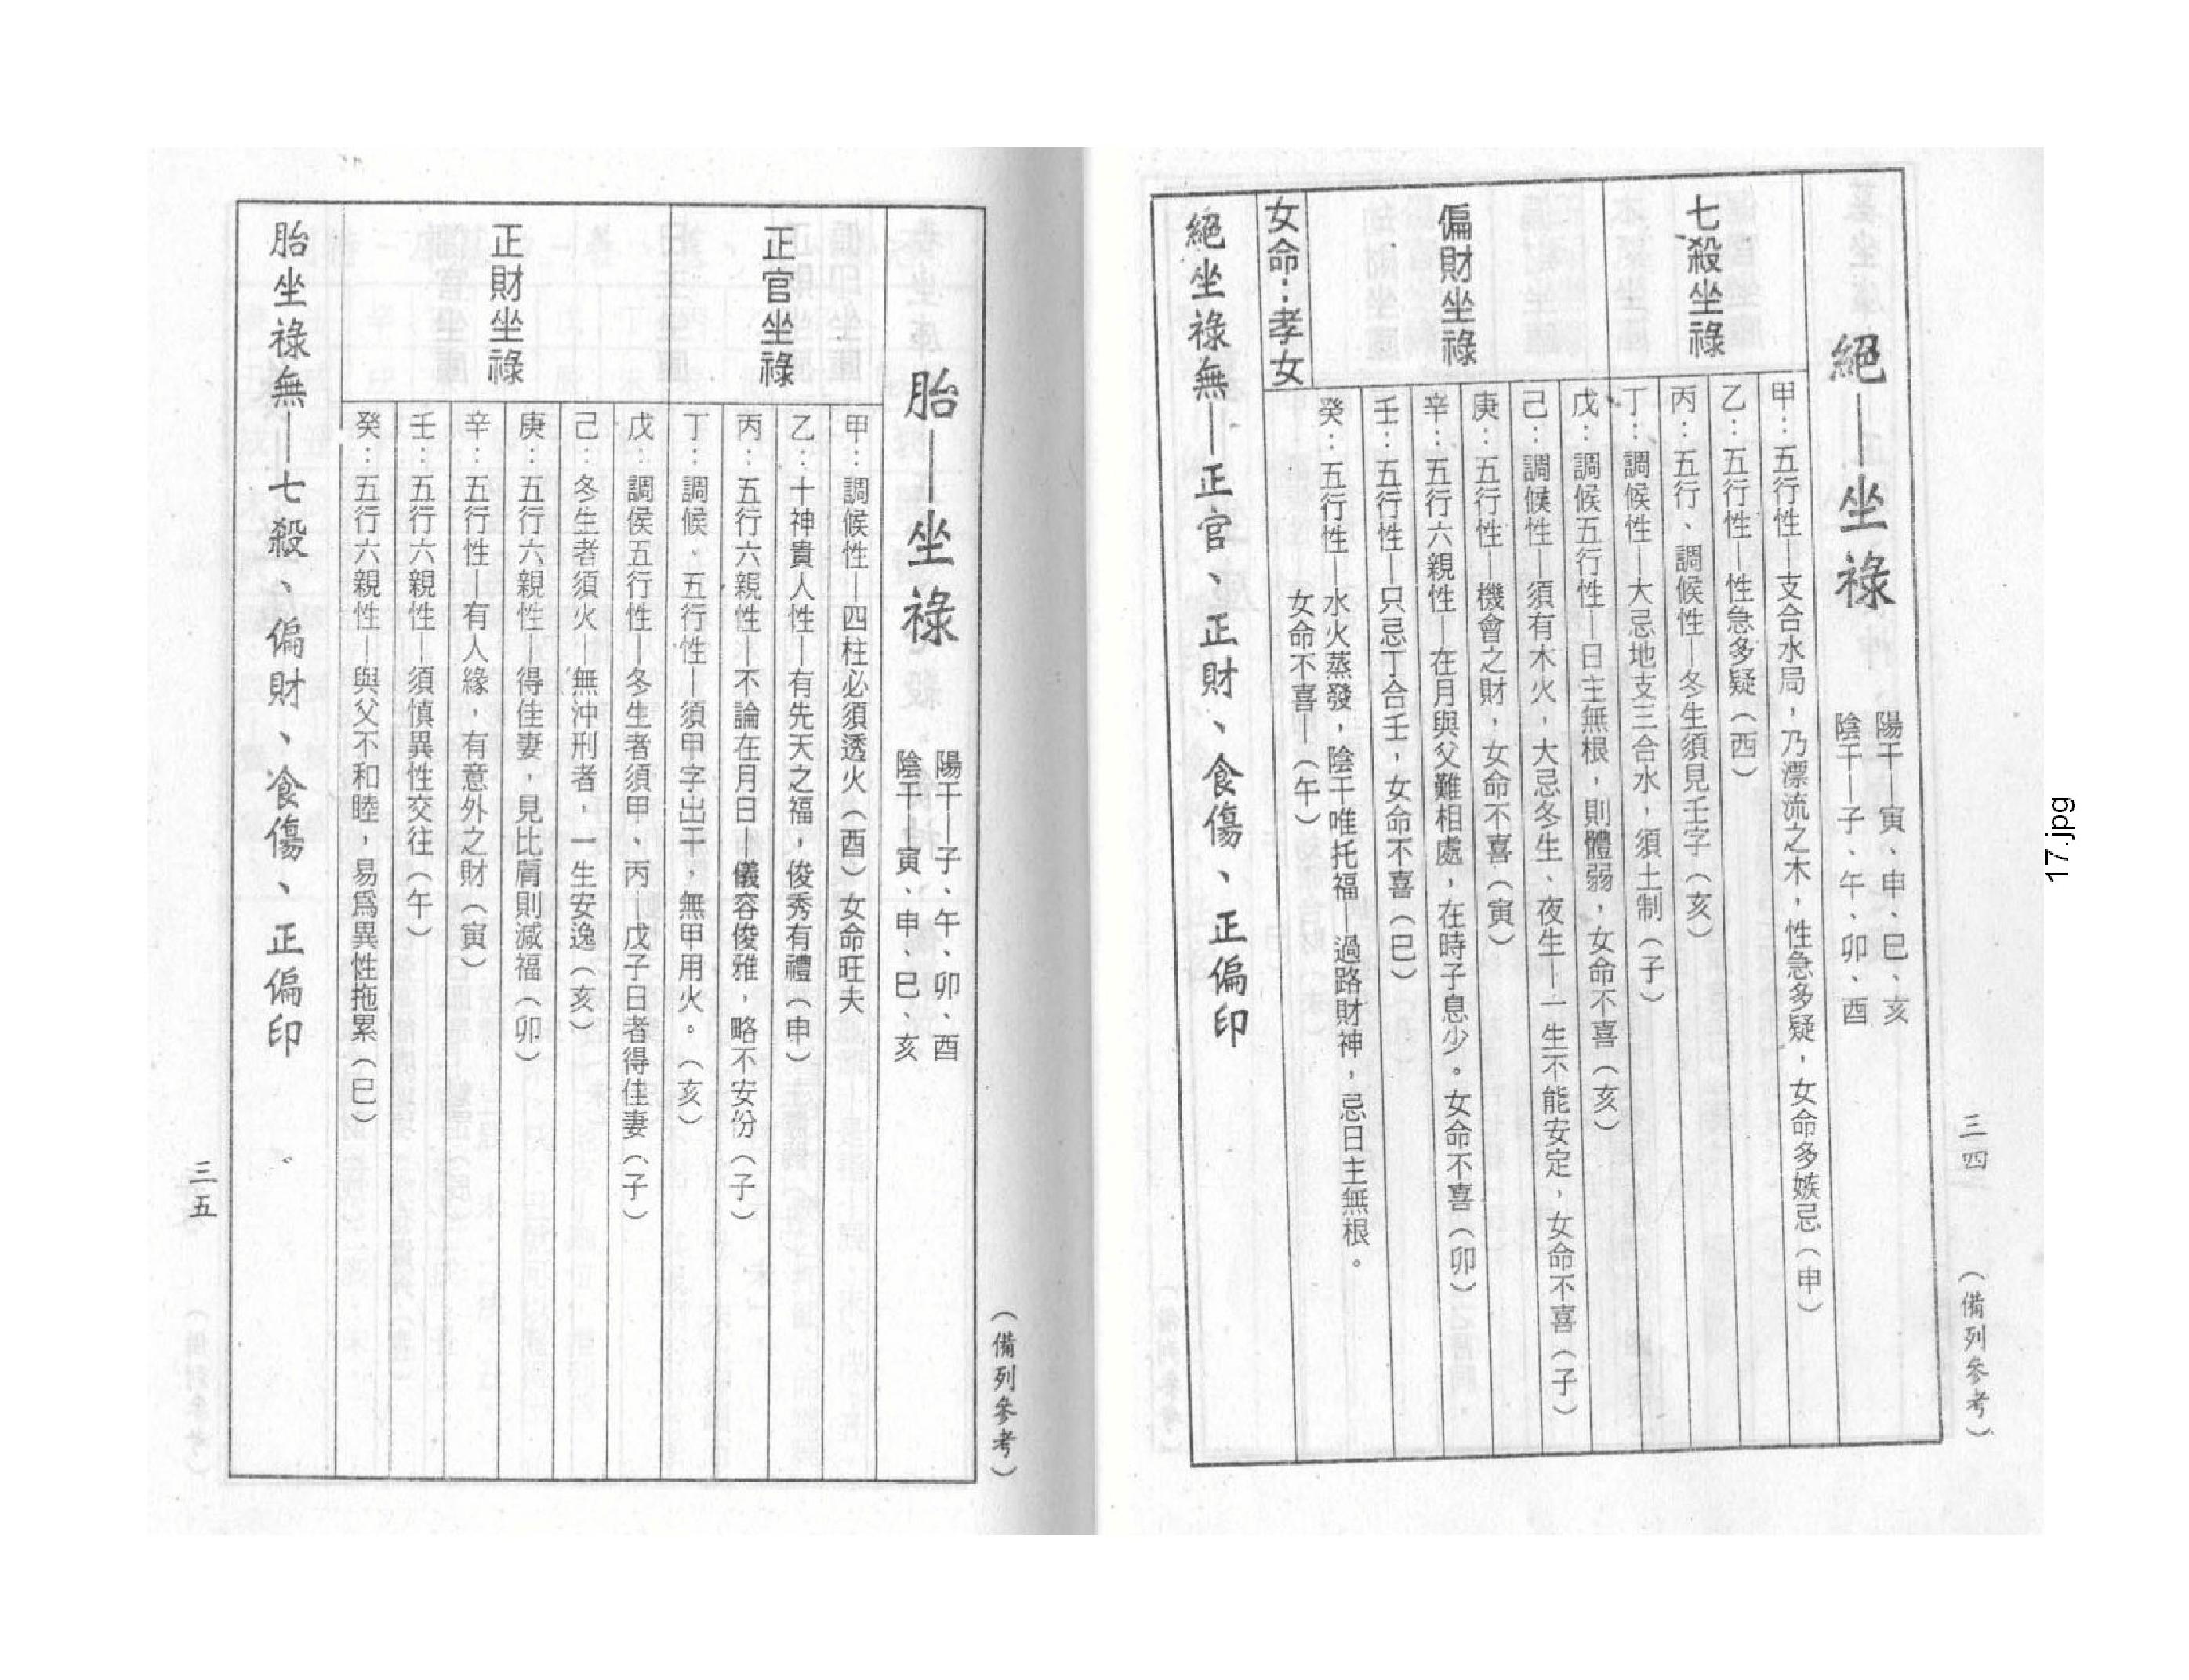 三四
（備列參考）
絕—坐祿
陽干—寅、申、巳、亥
陰干—子、午、卯、酉
七殺坐祿
甲：五行性—支合水局，乃漂流之木，性急多疑，女命多嫉忌（申）
乙：五行性—性急多疑（酉）
丙：五行、調候性—冬生須見壬字（亥）
丁：調候性—大忌地支三合水，須土制（子）
偏財坐祿
戊：調候五行性—日主無根，則體弱，女命不喜（亥）
己：調候性—須有木火，大忌冬生、夜生—一生不能安定，女命不喜（子）
庚：五行性—機會之財，女命不喜（寅）
辛：五行六親性—在月與父難相處，在時子息少。女命不喜（卯）
壬：五行性—只忌丁合壬，女命不喜（巳）
癸：五行性—水火蒸發，陰干唯托福　過路財神，忌日主無根。
女命不喜—（午）
女命：孝女
絕坐祿無—正官、正財、食傷、正偏印
（備列參考）
胎—坐祿
陽干—子、午、卯、酉
陰干—寅、申、巳、亥
正官坐祿
甲：調候性—四柱必須透火（酉）女命旺夫
乙：十神貴人性—有先天之福，俊秀有禮（申）
丙：五行六親性—不論在月日—儀容俊雅，略不安份（子）
丁：調候、五行性—須甲字出干，無甲用火。（亥）
正財坐祿
戊：調侯五行性—冬生者須甲、丙—戊子日者得佳妻（子）
己：冬生者須火—無沖刑者，一生安逸（亥）
庚：五行六親性—得佳妻，見比肩則減福（卯）
辛：五行性—有人緣，有意外之財（寅）
壬：五行六親性—須慎異性交往（午）
癸：五行六親性—與父不和睦，易爲異性拖累（巳）
胎坐祿無—七殺、偏財、食傷、正偏印
三五
17.jpg